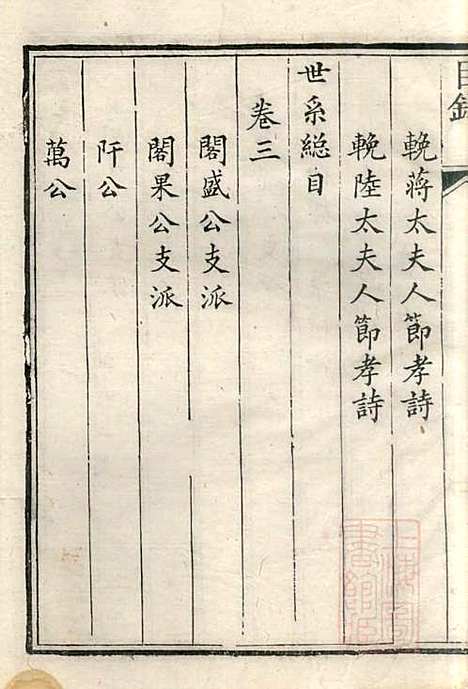 目錄
輓蔣太夫人節孝詩
輓陸太夫人節孝詩
世系總目
卷三
閣盛公支派
閣果公支派
阡公
萬公
上海圖書館藏